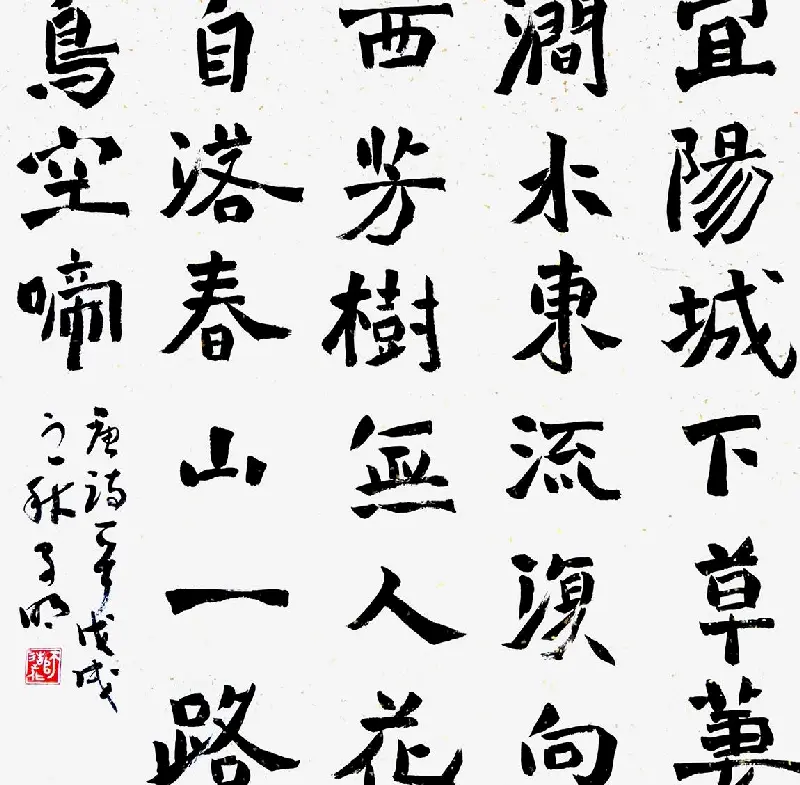 宜陽城下草萋
澗水東流復向
西芳樹無人花
自落春山一路
鳥空啼
唐詩一首戊戌
之秋子明